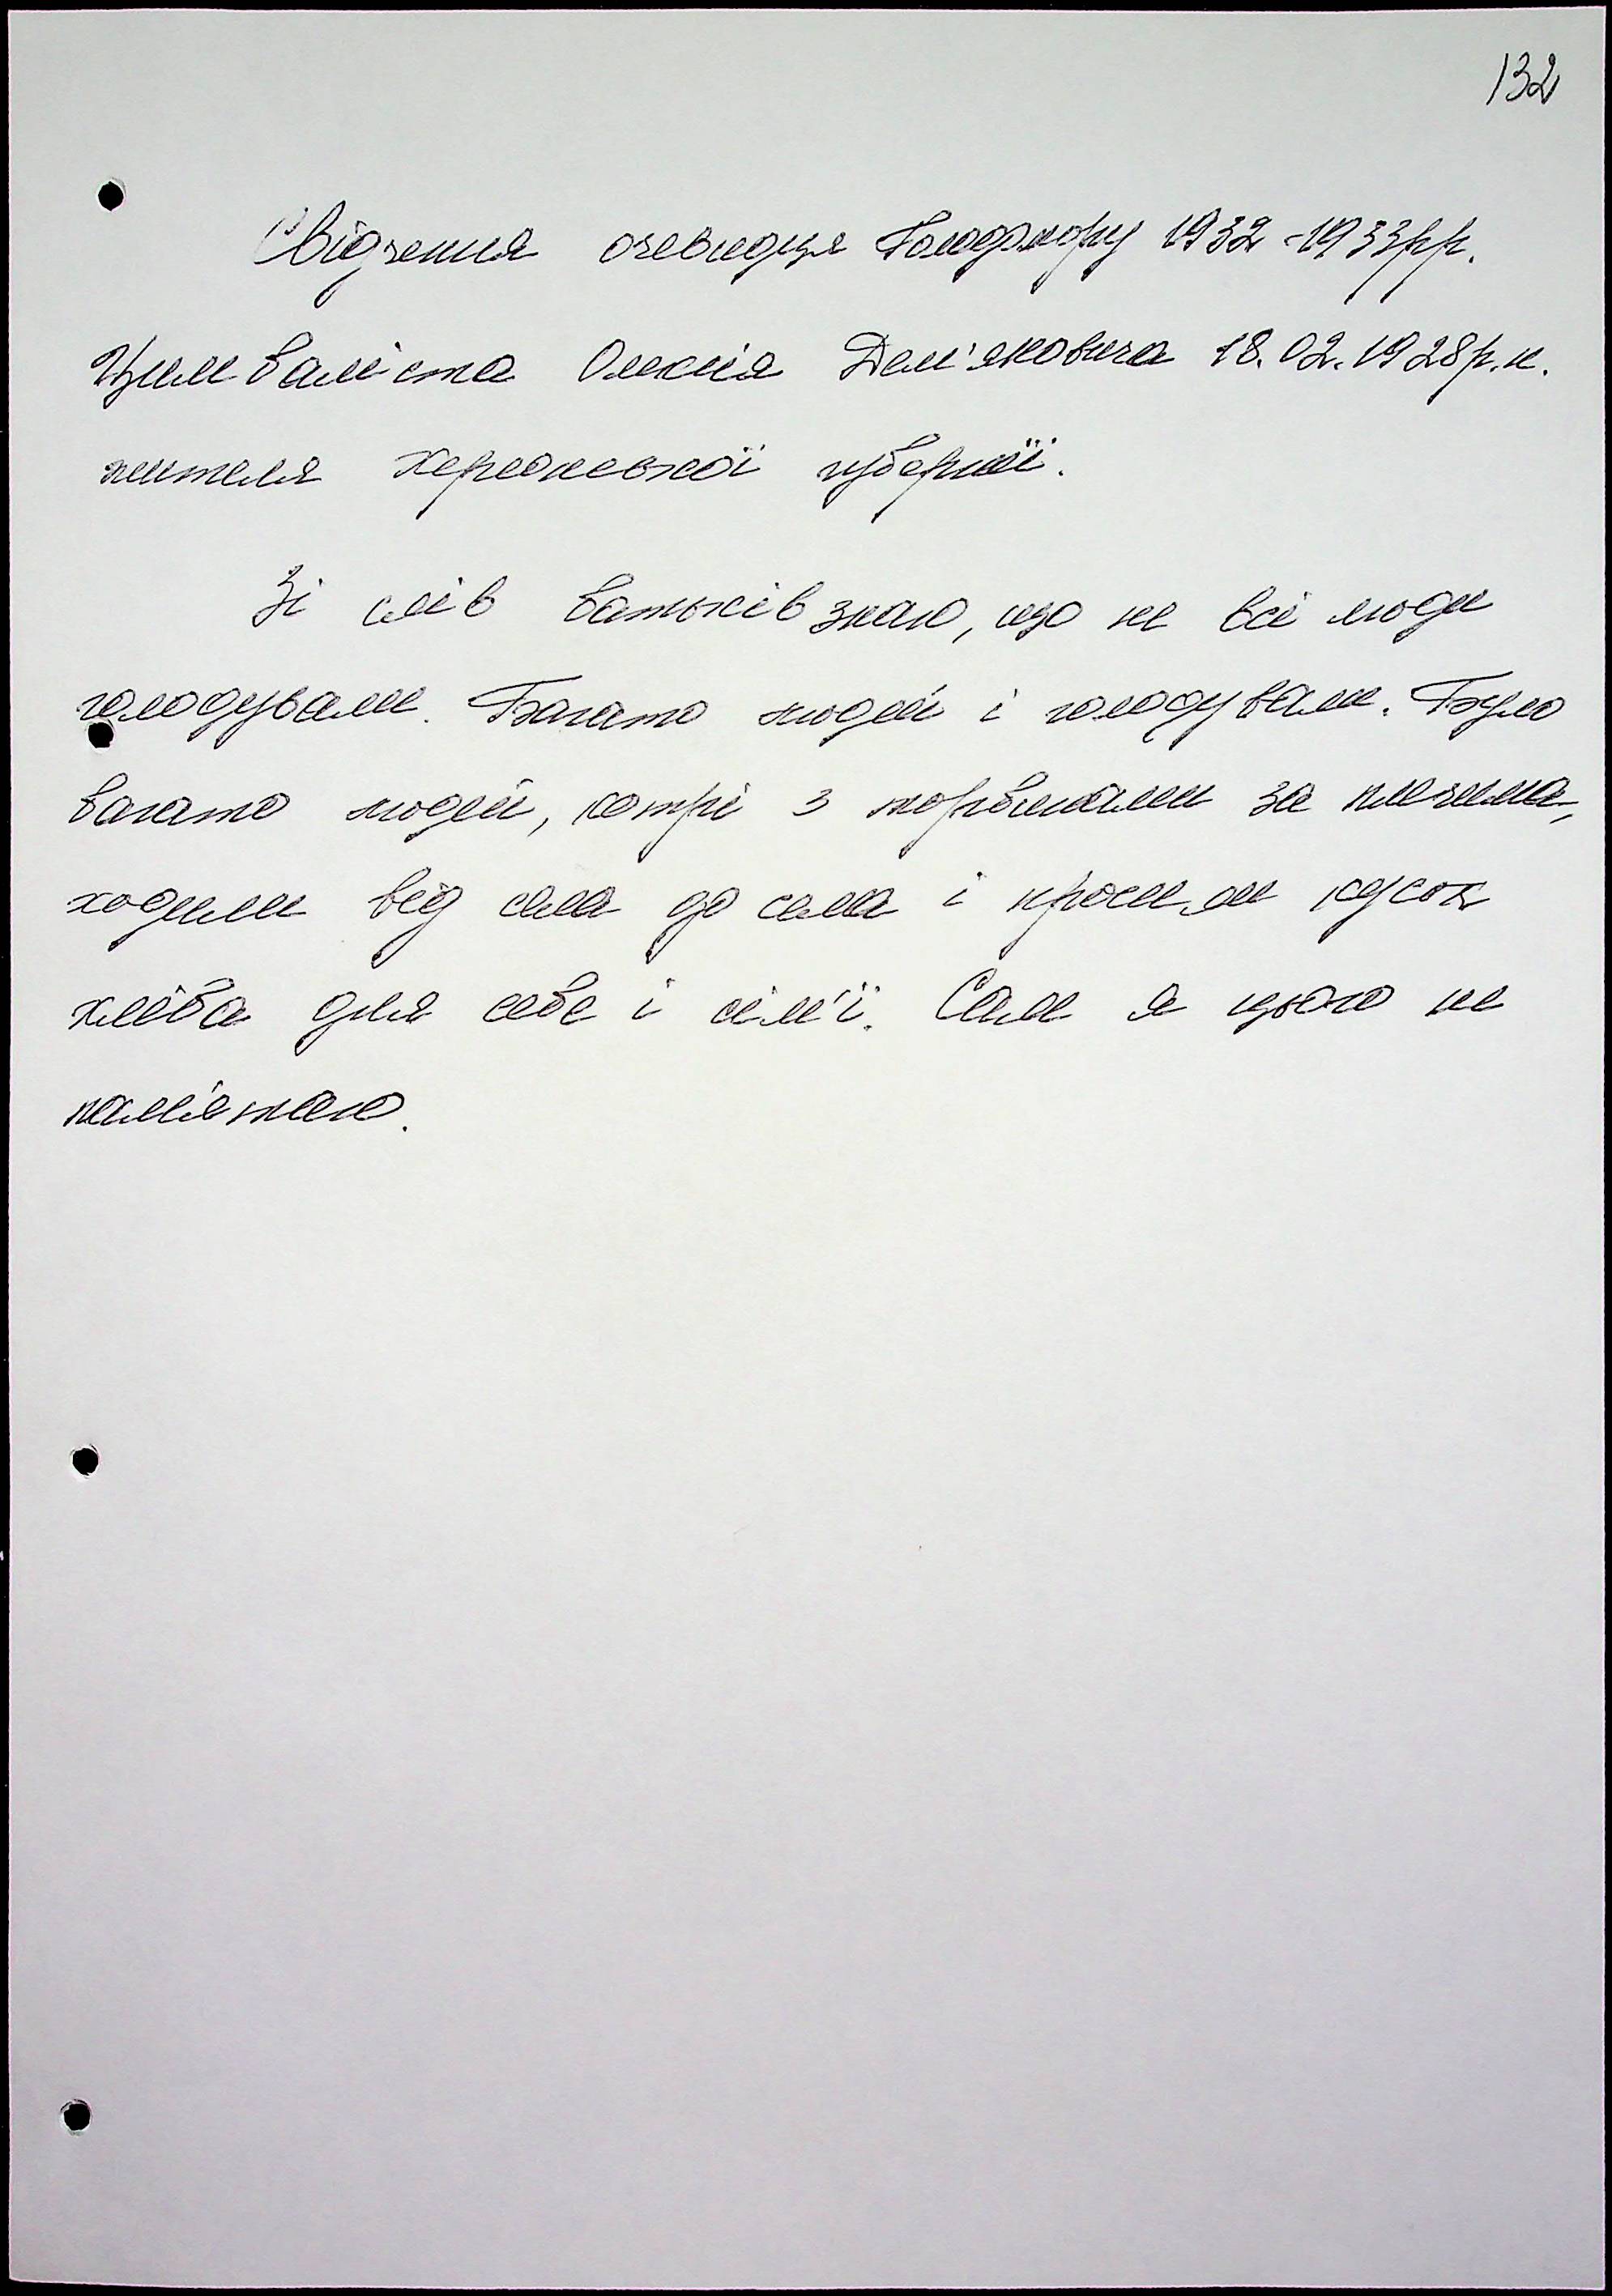 132
Свідчення очевидця Голодомору 1932-1933рр.
Цимбаліста Олексія Дем'яновича 18.02.1928р.н.
жителя Херсонської губернії.
Зі слів батьків знаю, що не всі люди
голодували. Багато людей і голодували. Було
багато людей, котрі з торбинами за плечима,
ходили від села до села і просили кусок
хліба для себе і сім'ї. Сам я цього не
пам'ятаю.